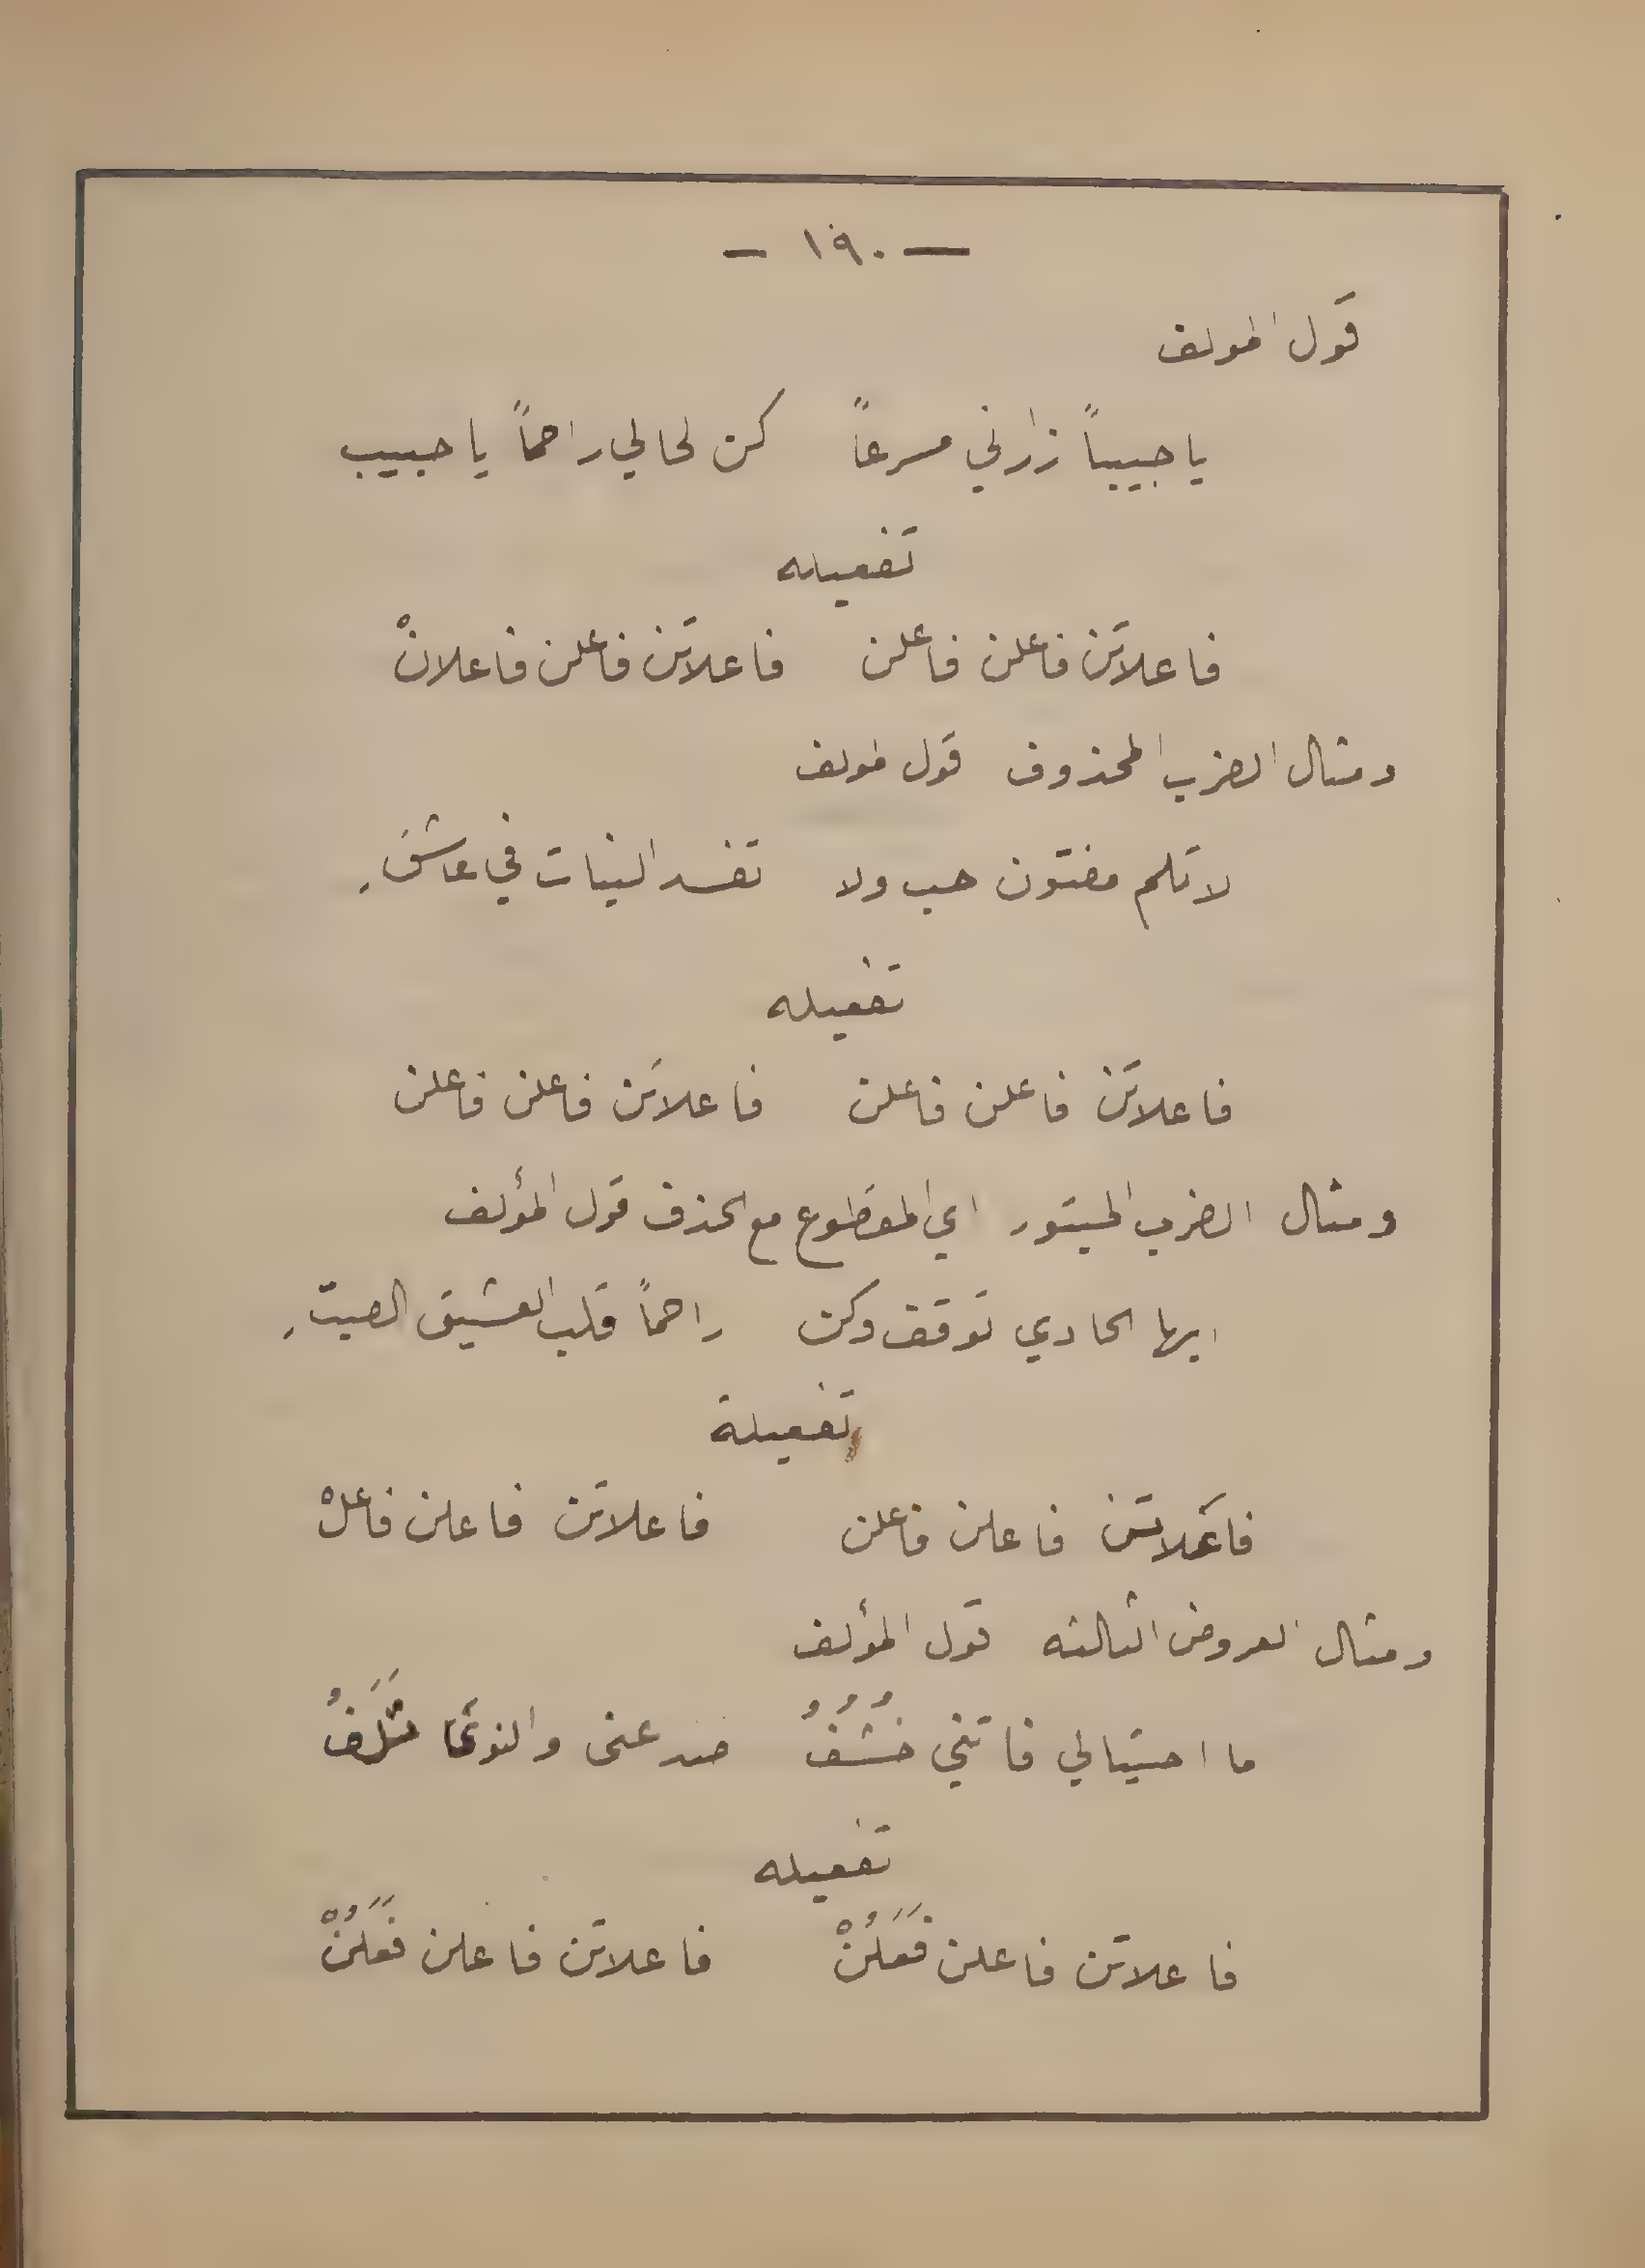 — ١٩٠ —
قول المولف
يا حبيباً زارني مسرعاً كن لحالي راحماً يا حبيب
تفعيله
فاعلاتن فاعلن فاعلن فاعلاتن فاعلن فاعلانْ
ومثال الضرب المحذوف قول المولف
لا تلم مفتون حب ولا تفسد النيات في عاشقِ
تفعيله
فاعلاتن فاعلن فاعلن فاعلاتن فاعلن فاعلن
ومثال الضرب المبتور اي المقطوع مع الحذف قول المؤلف
ايها الحادي توقف وكن راحماً قلب العشيق الصبِّ
تفعيلة
فاعَلاتن فاعلن فاعلن فاعلاتن فاعلن فاعلْ
ومثال العروض الثالثه قول المؤلف
ما احتيالي فاتني خُشُفُ صد عنى والنوى تَلَفُ
تفعيله
فاعلاتن فاعلن فَعَلُنْ فاعلاتن فاعلن فَعَلُنْ